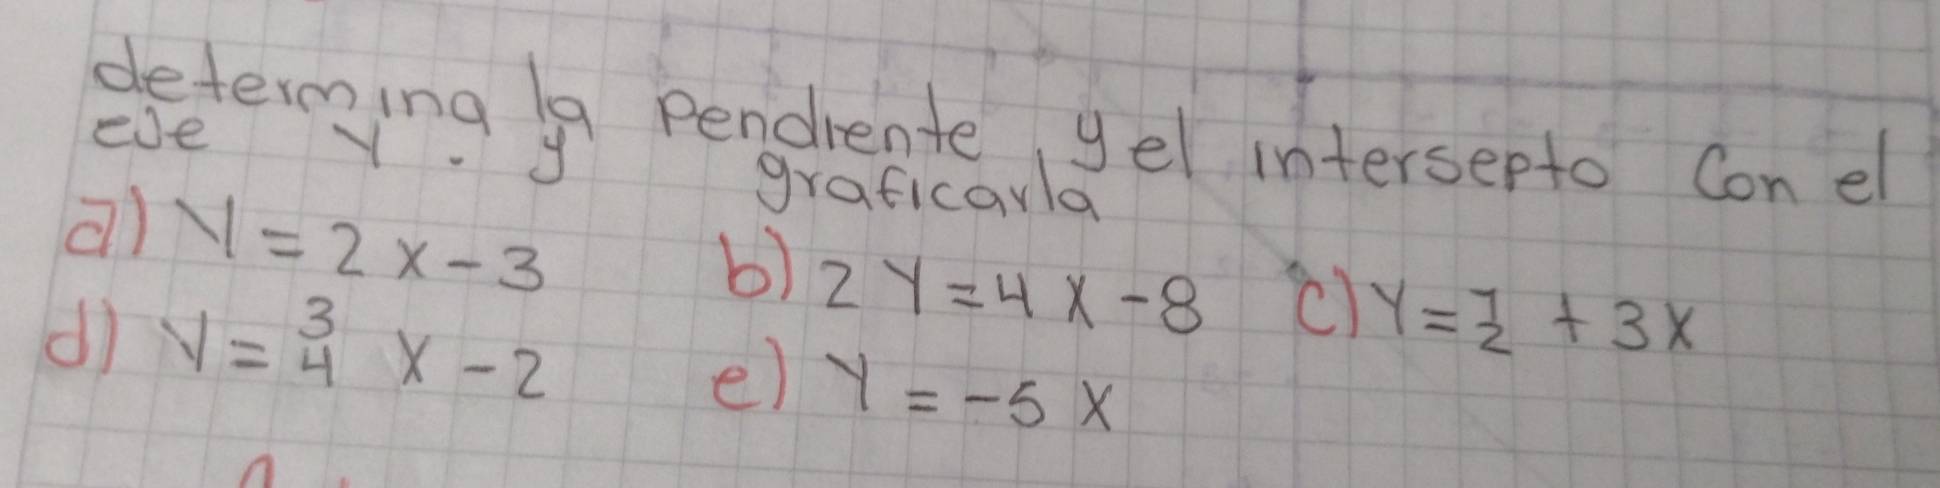 determina la Pendiente y el intersepto Con el
eje Y. y graficarla
a) Y = 2x - 3 b) 2Y = 4x - 8 c) Y = 1/2 + 3x
d) Y = 3/4 x - 2 e) Y = -5x